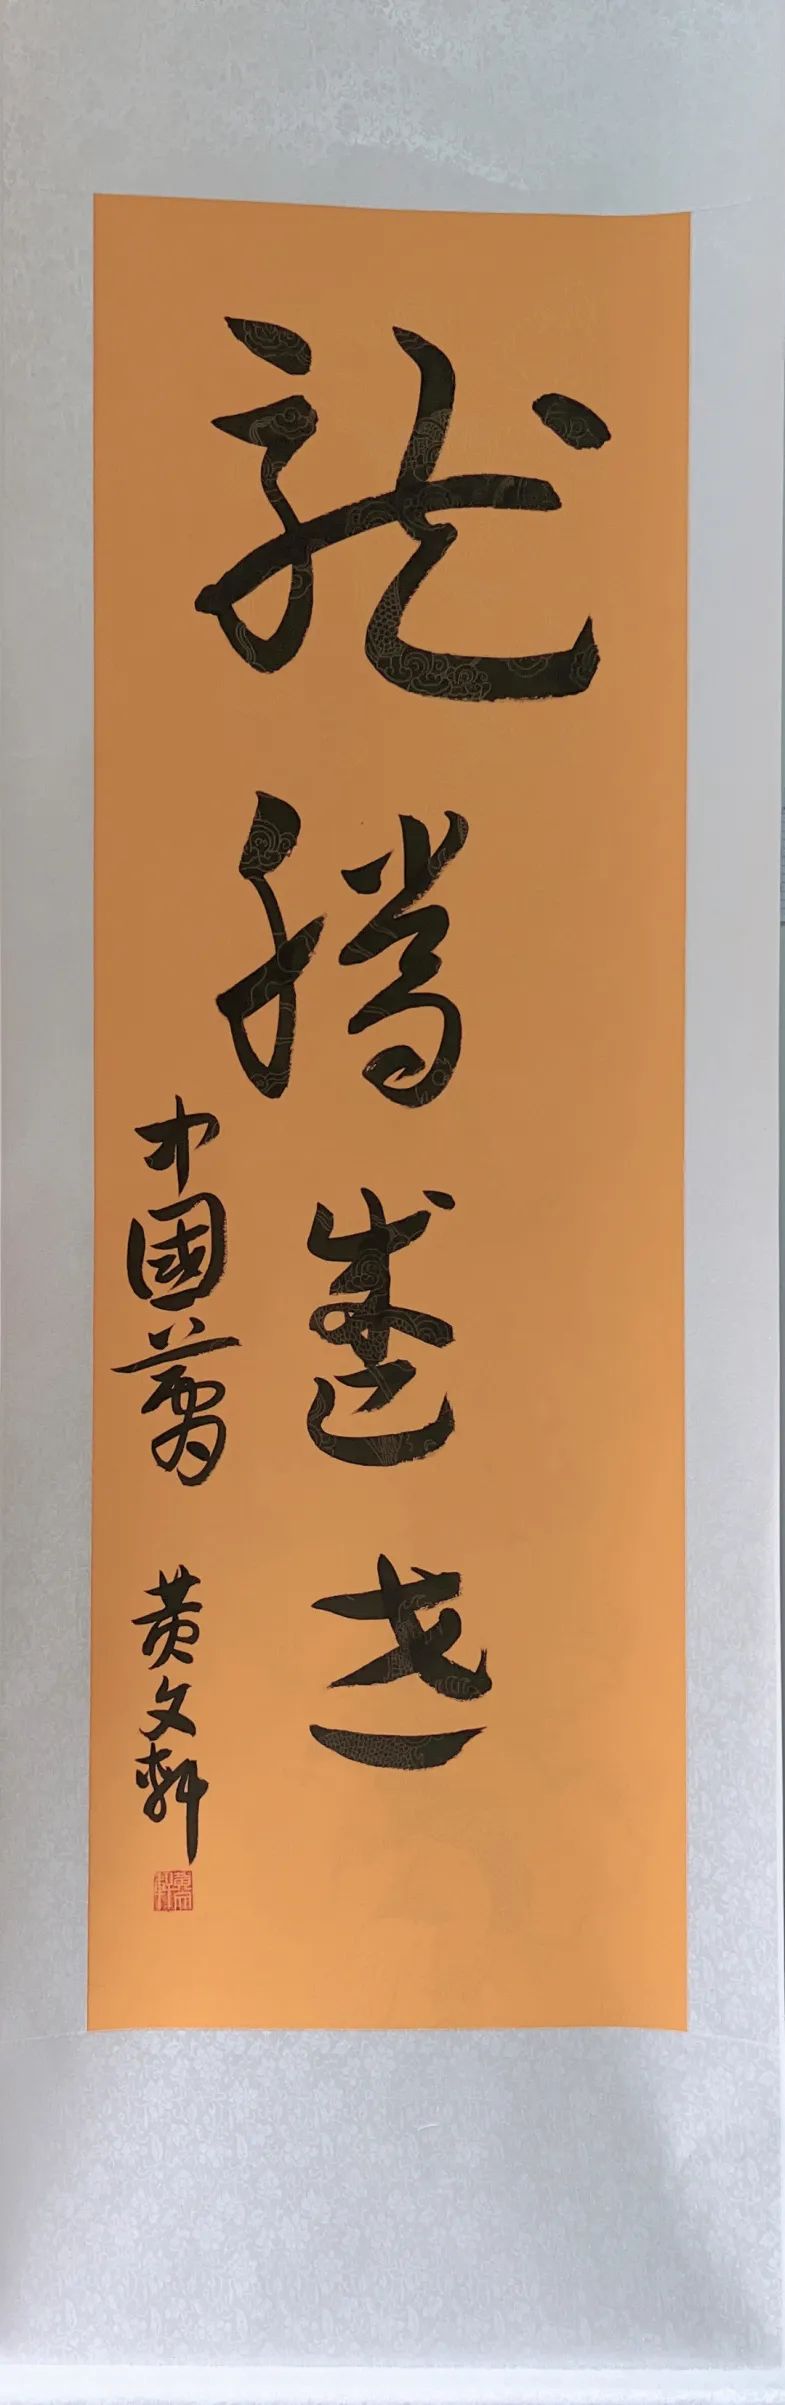 龙腾盛世
中國夢
黄文軒